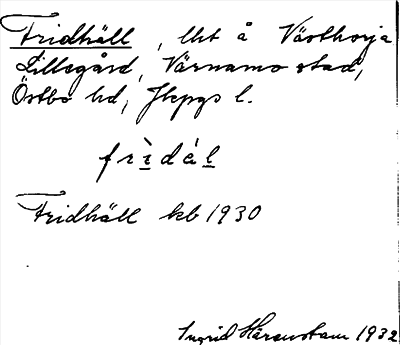 Fridhäll, lht å Västhorja
Lillegård, Värnamo stad,
Östbo hd, Jkpgs l.
frìdál
Fridhäll kb 1930
Ingrid Härenstam 1932